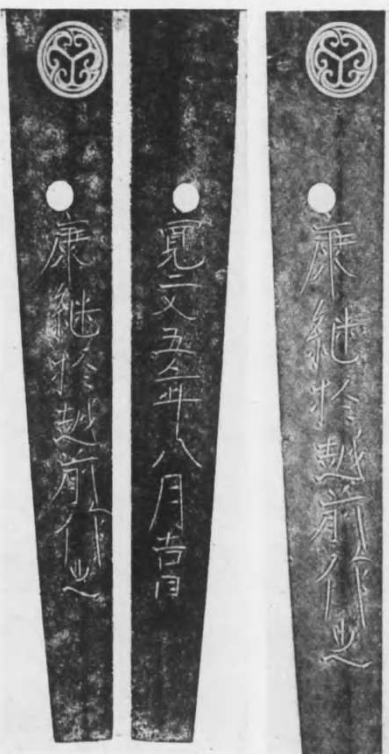 康継於越前作之
寛文五年八月吉日
康継於越前作之